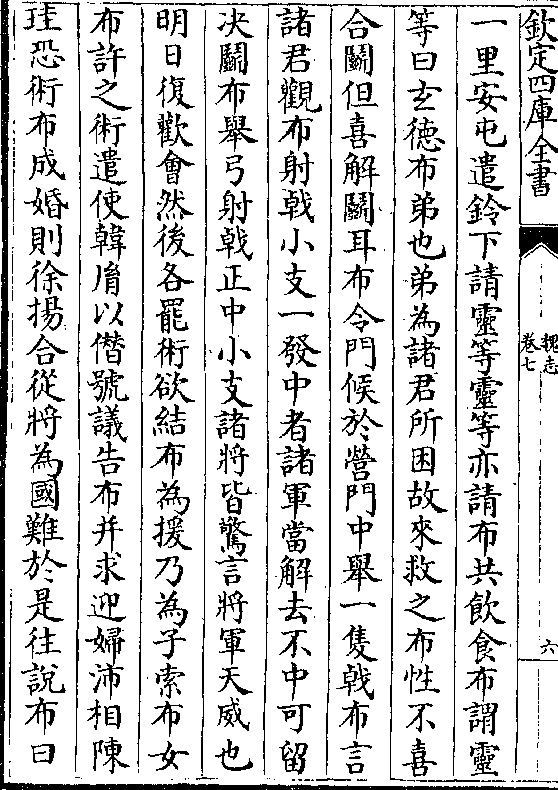 欽定四庫全書
魏志
卷七
六
一里安屯遣鈴下請靈等靈等亦請布共飲食布謂靈
等曰玄徳布弟也弟為諸君所困故來救之布性不喜
合鬭但喜解鬭耳布令門候於營門中舉一隻戟布言
諸君觀布射戟小支一發中者諸軍當解去不中可留
决鬭布舉弓射戟正中小支諸將皆驚言將軍天威也
明日復歡會然後各罷術欲結布為援乃為子索布女
布許之術遣使韓脩以僭號議告布并求迎婦沛相陳
珪恐術布成婚則徐揚合從將為國難於是往說布曰